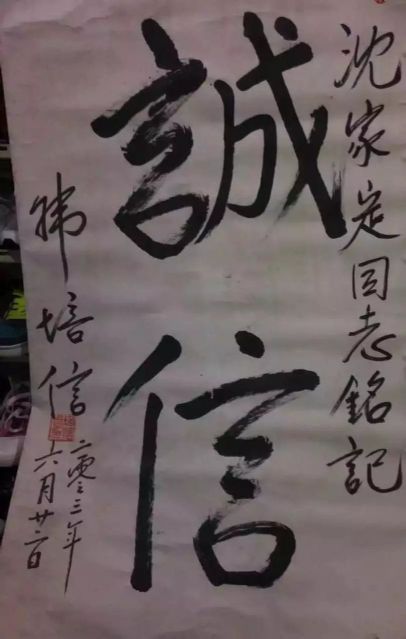 沈家定同志銘記
誠信
韩培信
二零々三年
六月廿二日